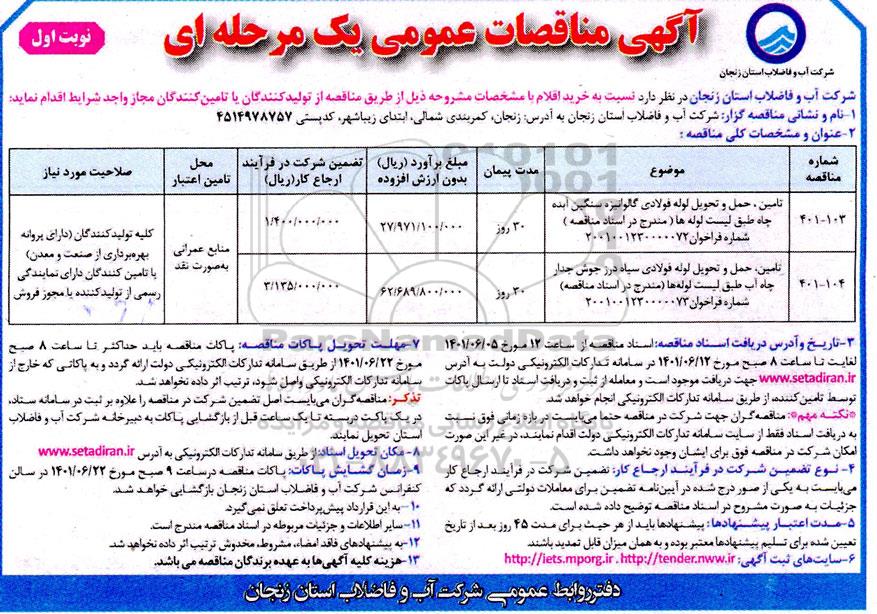 آگهی مناقصات عمومی یک مرحله ای
نوبت اول
شرکت آب و فاضلاب استان زنجان
شرکت آب و فاضلاب استان زنجان در نظر دارد نسبت به خرید اقلام با مشخصات مشروحه ذیل از طریق مناقصه از تولیدکنندگان یا تامین‌کنندگان مجاز واجد شرایط اقدام نماید:
۱-نام و نشانی مناقصه گزار: شرکت آب و فاضلاب استان زنجان به آدرس: زنجان، کمربندی شمالی، ابتدای زیباشهر، کدپستی ۴۵۱۴۹۷۸۷۵۷
۲-عنوان و مشخصات کلی مناقصه :
شماره مناقصه
موضوع
مدت پیمان
مبلغ برآورد (ریال) بدون ارزش افزوده
تضمین شرکت در فرآیند ارجاع کار(ریال)
محل تامین اعتبار
صلاحیت مورد نیاز
۴۰۱-۱۰۳
تامین ، حمل و تحویل لوله فولادی گالوانیزه سنگین آبده
چاه طبق لیست لوله ها ( مندرج در اسناد مناقصه )
شماره فراخوان۲۰۰۱۰۰۱۲۳۰۰۰۰۰۷۲
۳۰ روز
۲۷/۹۷۱/۱۰۰/۰۰۰
۱/۴۰۰/۰۰۰/۰۰۰
۴۰۱-۱۰۴
تامین، حمل و تحویل لوله فولادی سیاه درز جوش جدار
چاه آب طبق لیست لوله‌ها (مندرج در اسناد مناقصه)
شماره فراخوان۲۰۰۱۰۰۱۲۳۰۰۰۰۰۷۳
۳۰ روز
۶۲/۶۸۹/۸۰۰/۰۰۰
۳/۱۳۵/۰۰۰/۰۰۰
منابع عمرانی
به‌صورت نقد
کلیه تولیدکنندگان (دارای پروانه
بهره‌برداری از صنعت و معدن)
یا تامین کنندگان دارای نمایندگی
رسمی از تولیدکننده یا مجوز فروش
۳-تاریخ و آدرس دریافت اسناد مناقصه: اسناد مناقصه از ساعت ۱۲ مورخ ۱۴۰۱/۰۶/۰۵
لغایت تا ساعت ۸ صبح مورخ ۱۴۰۱/۰۶/۱۲ در سامانه تدارکات الکترونیکی دولت به آدرس
www.setadiran.ir جهت دریافت موجود است و معامله از ثبت و دریافت اسناد تا ارسال پاکات
توسط تامین‌کننده، از طریق سامانه تدارکات الکترونیکی انجام خواهد شد.
*نکته مهم*: مناقصه‌گران جهت شرکت در مناقصه حتما می‌بایست در بازه زمانی فوق نسبت
به دریافت اسناد فقط از سایت سامانه تدارکات الکترونیکی دولت اقدام نمایند، در غیر این صورت
امکان شرکت در مناقصه فوق برای ایشان وجود نخواهد داشت.
۴- نوع تضمین شرکت در فرآیند ارجاع کار: تضمین شرکت در فرآیند ارجاع کار
می‌بایست به یکی از صور درج شده در آیین‌نامه تضمین برای معاملات دولتی ارائه گردد که
جزئیات به صورت مشروح در اسناد مناقصه توضیح داده شده است.
۵-مدت اعتبار پیشنهادها: پیشنهادها باید از هر حیث برای مدت ۴۵ روز بعد از تاریخ
تعیین شده برای تسلیم پیشنهادها معتبر بوده و به همان میزان قابل تمدید باشند.
۶-سایت‌های ثبت آگهی: http://iets.mporg.ir . http://tender.nww.ir
۷-مهلت تحویل پاکات مناقصه: پاکات مناقصه باید حداکثر تا ساعت ۸ صبح
مورخ ۱۴۰۱/۰۶/۲۲ از طریق سامانه تدارکات الکترونیکی دولت ارائه گردد و به پاکاتی که خارج از
سامانه تدارکات الکترونیکی واصل شود، ترتیب اثر داده نخواهد شد.
تذکر: مناقصه گران می‌بایست اصل تضمین شرکت در مناقصه را علاوه بر ثبت در سامانه ستاد،
در یک پاکت دربسته تا یک ساعت قبل از بازگشایی پاکات به دبیرخانه شرکت آب و فاضلاب
استان تحویل نمایند.
۸- مکان تحویل اسناد: از طریق سامانه تدارکات الکترونیکی به آدرس www.setadiran.ir
۹-زمان گشایش پاکات: پاکات مناقصه درساعت ۹ صبح مورخ ۱۴۰۱/۰۶/۲۲ در سالن
کنفرانس شرکت آب و فاضلاب استان زنجان بازگشایی خواهد شد.
۱۰-به این قرارداد پیش‌پرداخت تعلق نمی‌گیرد.
۱۱-سایر اطلاعات و جزئیات مربوطه در اسناد مناقصه مندرج است.
۱۲-به پیشنهادهای فاقد امضاء، مشروط، مخدوش ترتیب اثر داده نخواهد شد.
۱۳-هزینه کلیه آگهی‌ها به عهده برندگان مناقصه می باشد.
دفتر روابط عمومی شرکت آب و فاضلاب استان زنجان